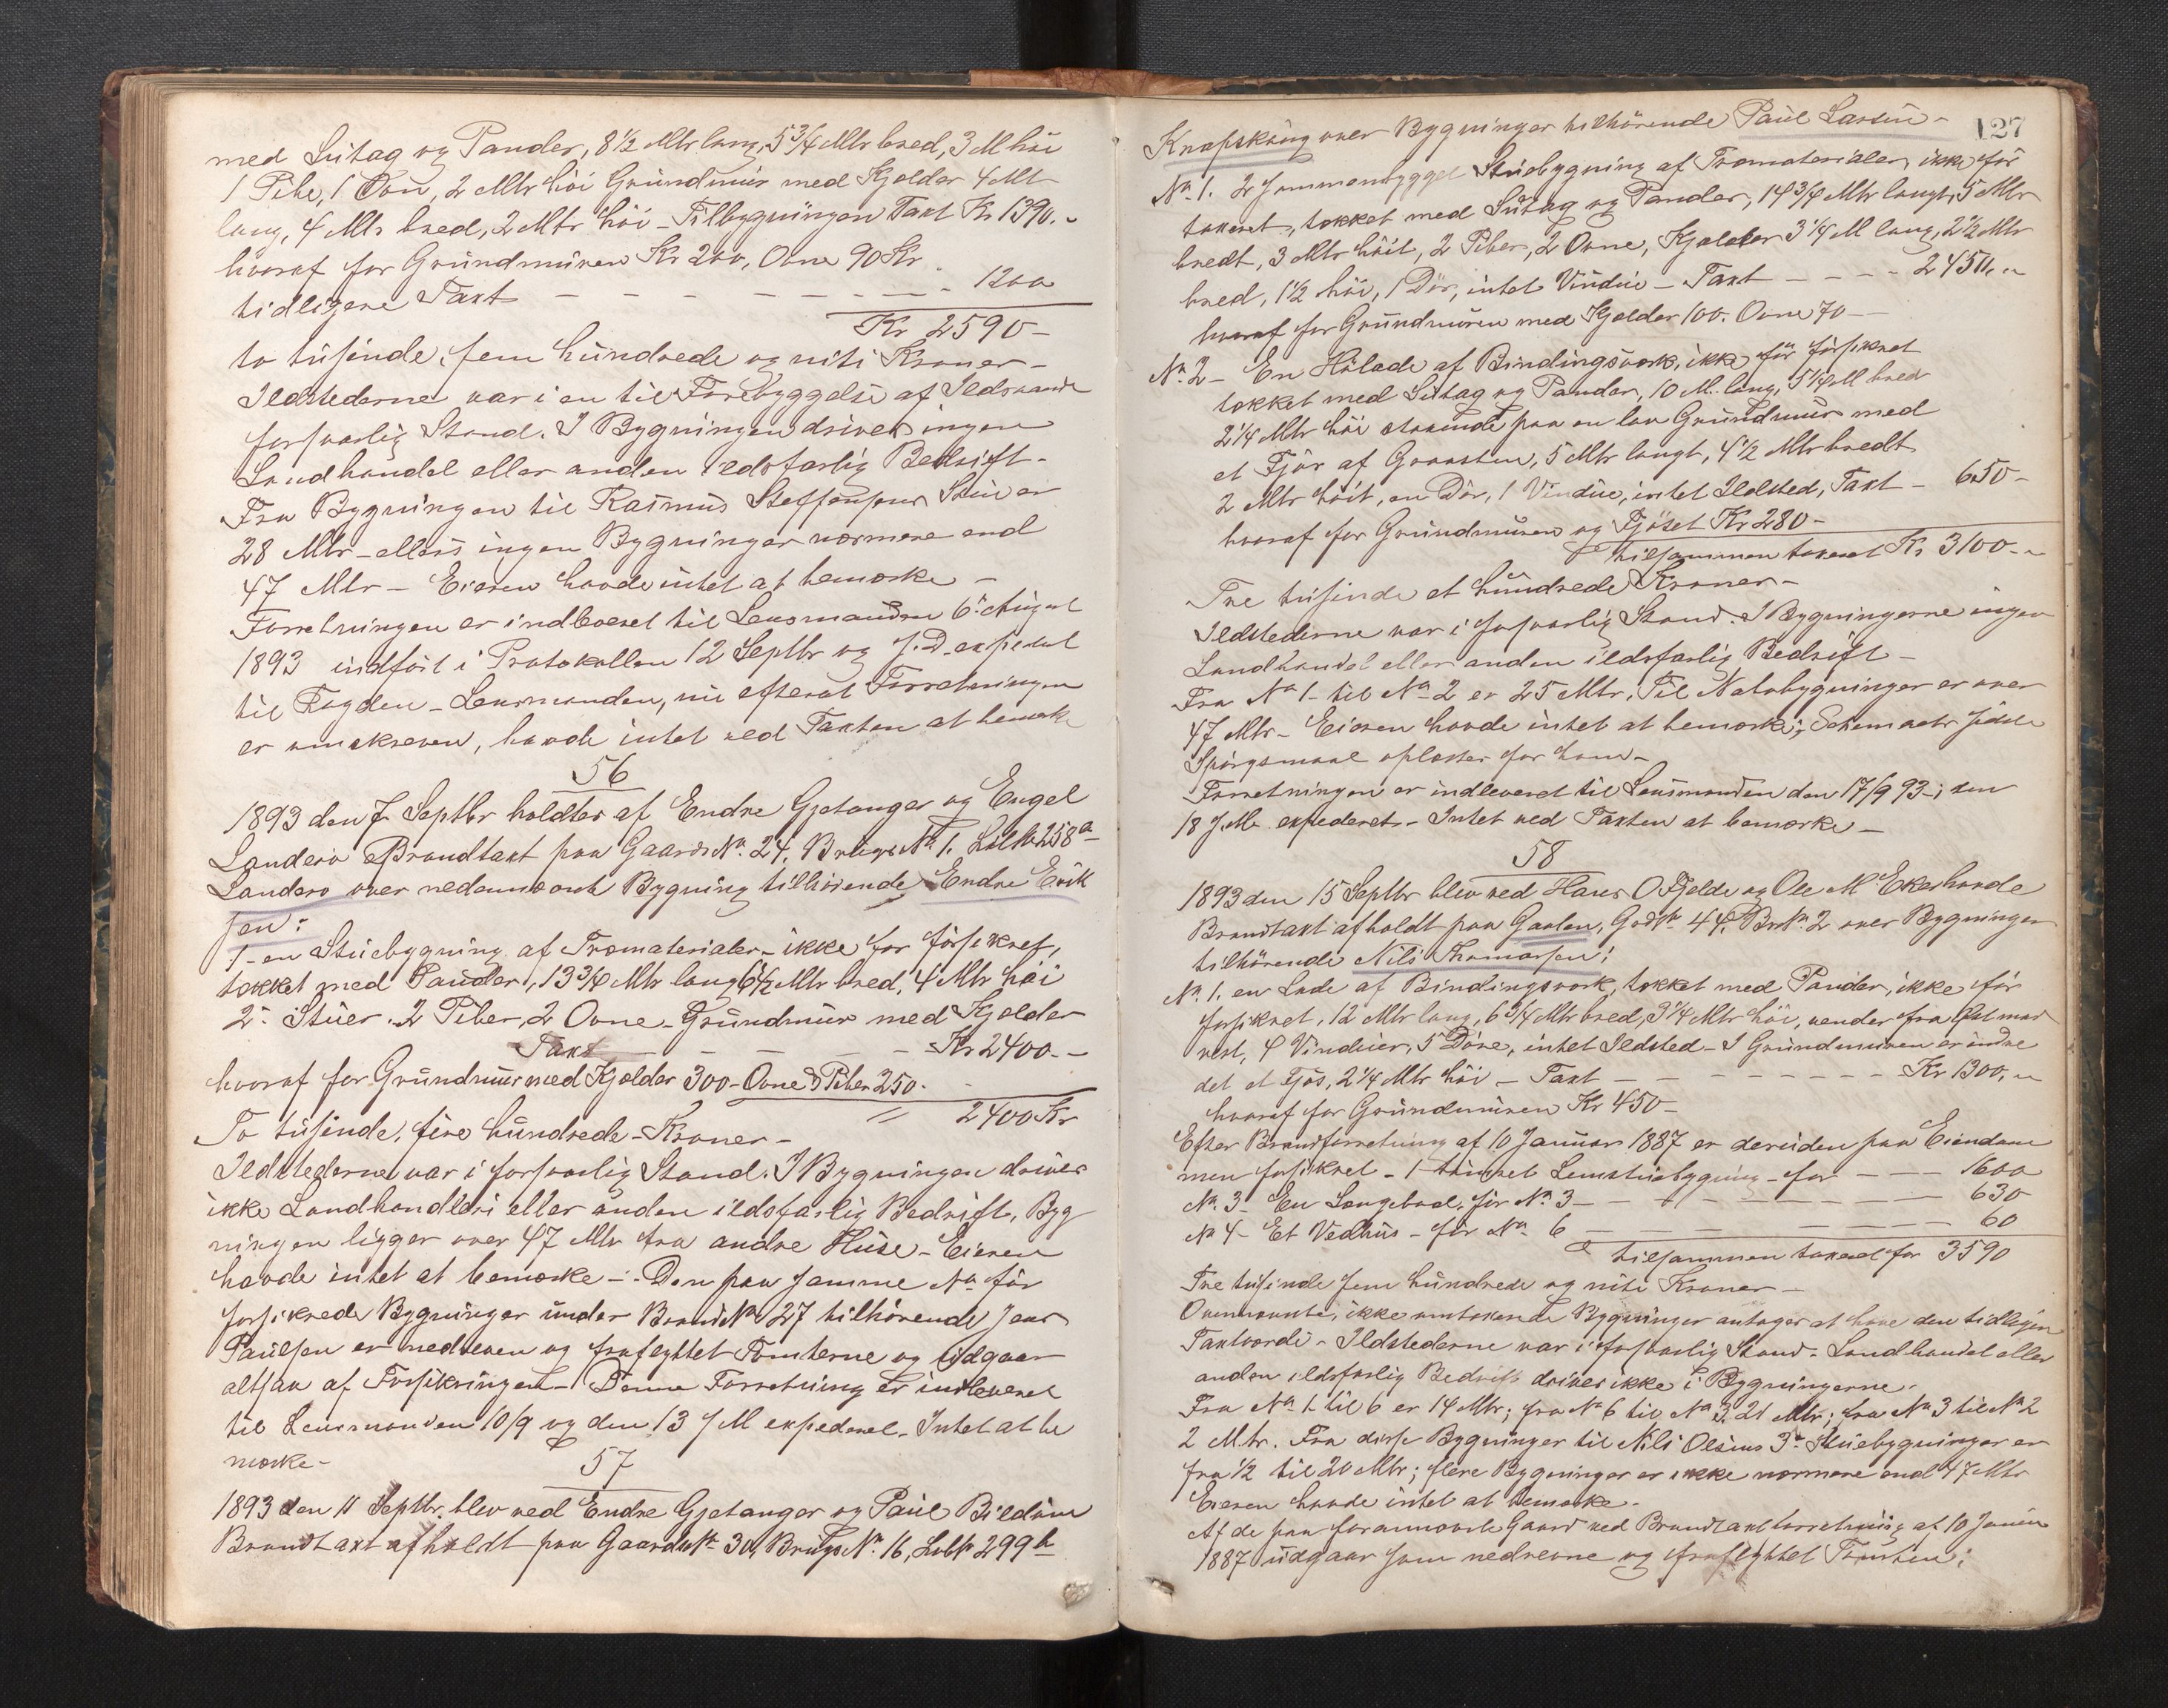 med Sutag og Pander, 8 1/2 Mtr lang, 5 3/4 Mtr bred, 3 M høi
1 Pibe, 1 Ovn, 2 Mtr høi Grundmur med Kjelder 4 Mt
lang, 4 Mtr bred, 2 Mtr høi – Tilbygningen Taxt Kr 1390.-
hvoraf for Grundmuren Kr 200, Ovne 90 Kr
tidligere Taxt – – – – – – – – 1200
Kr 2590 –
to tusinde, fem hundrede og niti Kroner –
Ildstederne var i en til Forebyggelse af Ildsvaade
forsvarlig Stand. I Bygningen drives ingen
Landhandel eller anden ildsfarlig Bedrift –
Fra Bygningen til Rasmus Steffensens Stue er
28 Mtr – ellers ingen Bygninger nærmere end
47 Mtr – Eieren havde intet at bemærke –
Forretningen er indleveret til Lensmanden 6te August
1893 indført i Protokollen 12 Septbr og s. D. expederet
til Fogden – Lensmanden, nu efterat Forretningen
er omskreven, havde intet ved Taxten at bemærke
56
1893 den 7 Septbr holdtes af Endre Gjetanger og Engel
Landerø Brandtaxt paa Gaards No. 24, Brugs No 1. Løb No 258a
Landerø over nedennævnte Bygning tilhørende Endre Erik
sen:
1 – en Stuebygning af Træmaterialer – ikke før forsikret,
tækket med Pander, 13 3/4 Mtr lang 6 1/2 Mtr bred, 4 Mtr høi
2 Stuer. 2 Piber, 2 Ovne – Grundmur med Kjelder
Taxt – – – – – Kr 2400.-
hvoraf for Grundmur med Kjelder 300 – Ovne & Piber 250.
= 2400 Kr
To tusinde, fire hundrede – Kroner –
Ildstederne var i forsvarlig Stand. I Bygningen drives
ikke Landhandleri eller anden ildsfarlig Bedrift, Byg
ningen ligger over 47 Mtr fra andre Huse – Eieren
havde intet at bemærke –. Den paa samme No før
forsikrede Bygninger under Brand No 27 tilhørende Jens
Paulsen er nedreven og fraflyttet Tomterne og udgaar
altsaa af Forsikringen – Denne Forretning er indleveret
til Lensmanden 10/9 og den 13 s M expederet – Intet at be
mærke –
57
1893 den 11 Septbr. blev ved Endre Gjetanger og Paul Bildøen
Brandtaxt afholdt paa Gaards No 30, Brugs No. 16, Løb No 299b
127
Knapskaug over Bygninger tilhørende Paul Larsen –
No. 1. 2 sammenbygget Stuebygning af Træmaterialer, ikke før
taxeret, tækket med Sutag og Pander, 14 3/4 Mtr langt, 5 Mtr
bredt, 3 Mtr høit, 2 Piber, 2 Ovne, Kjelder 3 1/4 M lang, 2 1/2 Mtr
bred, 1 1/2 høi, 1 Dør, intet Vindue – Taxt – – – – 2450.-
hvoraf for Grundmuren med Kjelder 100. Ovne 70 –
No. 2 – En Hølade af Bindingsværk, ikke før forsikret
tækket med Sutag og Pander, 10 M. lang, 5 1/4 M bred
2 1/4 Mtr høi staaende paa en lav Grundmur med
et Fjør af Graasten, 5 Mtr langt, 4 1/2 Mtr bredt
2 Mtr høit, en Dør, 1 Vindue, intet Ildsted, Taxt – 650 –
hvoraf for Grundmuren og Fjøset Kr 280 –
tilsammen taxeret Kr 3100.-
Tre tusinde et hundrede Kroner –
Ildstederne var i forsvarlig Stand. I Bygningerne ingen
Landhandel eller anden ildsfarlig Bedrift –
Fra No 1 – til No 2 er 25 Mtr. Til Nabobygninger er over
47 Mtr – Eieren havde intet at bemærke; Schemaets sidste
Spørgsmaal oplæstes for ham –
Forretningen er indleveret til Lensmanden den 17/9 93 –; den
18 s. M. expederet – Intet ved Taxten at bemærke –
58
1893 den 15 Septbr blev ved Hans O Fjelde og Ole M Ekerhovde
Brandtaxt afholdt paa Gaalen, Gads No 44, Brs No. 2 over Bygninger
tilhørende Nils Thomassen:
No. 1. en Lade af Bindingsværk, tækket med Pander, ikke før
forsikret, 12 Mtr lang, 6 3/4 Mtr bred, 3 1/4 Mtr høi, vender fra Øst mod
vest, 4 Vinduer, 5 Døre, intet Ildsted – I Grundmuren er indre
det et Fjøs, 2 1/4 Mtr høi – Taxt – – – – – – – Kr 1300.-
hvoraf for Grundmuren Kr 450 –
Efter Brandforretning af 10 Januar 1887 er desuden paa Eiendom
men forsikret – 1 tømret Lemstuebygning – for – – 1600
No. 3 – En Longebod, før No. 3 – – – – – – – 630
No 4 – Et Vedhus – før No 6 – – – – – 60
tilsammen taxeret for 3590
Tre tusinde fem hundrede og niti Kroner –
Ovennævnte, ikke omtaxerede Bygninger antages at have den tidligere
Taxtværdi – Ildstederne var i forsvarlig Stand. Landhandel eller
anden ildsfarlig Bedrift drives ikke i Bygningerne.
Fra No 1 til 6 er 14 Mtr; fra No 6 til No 3, 21 Mtr; fra No 3 til No 2
2 Mtr. Fra disse Bygninger til Nils Olsens 3de Stuebygninger er
fra 1/2 til 20 Mtr; flere Bygninger er ikke nærmere end 47 Mtr
Eieren havde intet at bemærke –
Af de paa forannævnte Gaard ved Brandtaxtforretning af 10 Januar
1887 udgaar som nedrevne og fraflyttet Tomten: